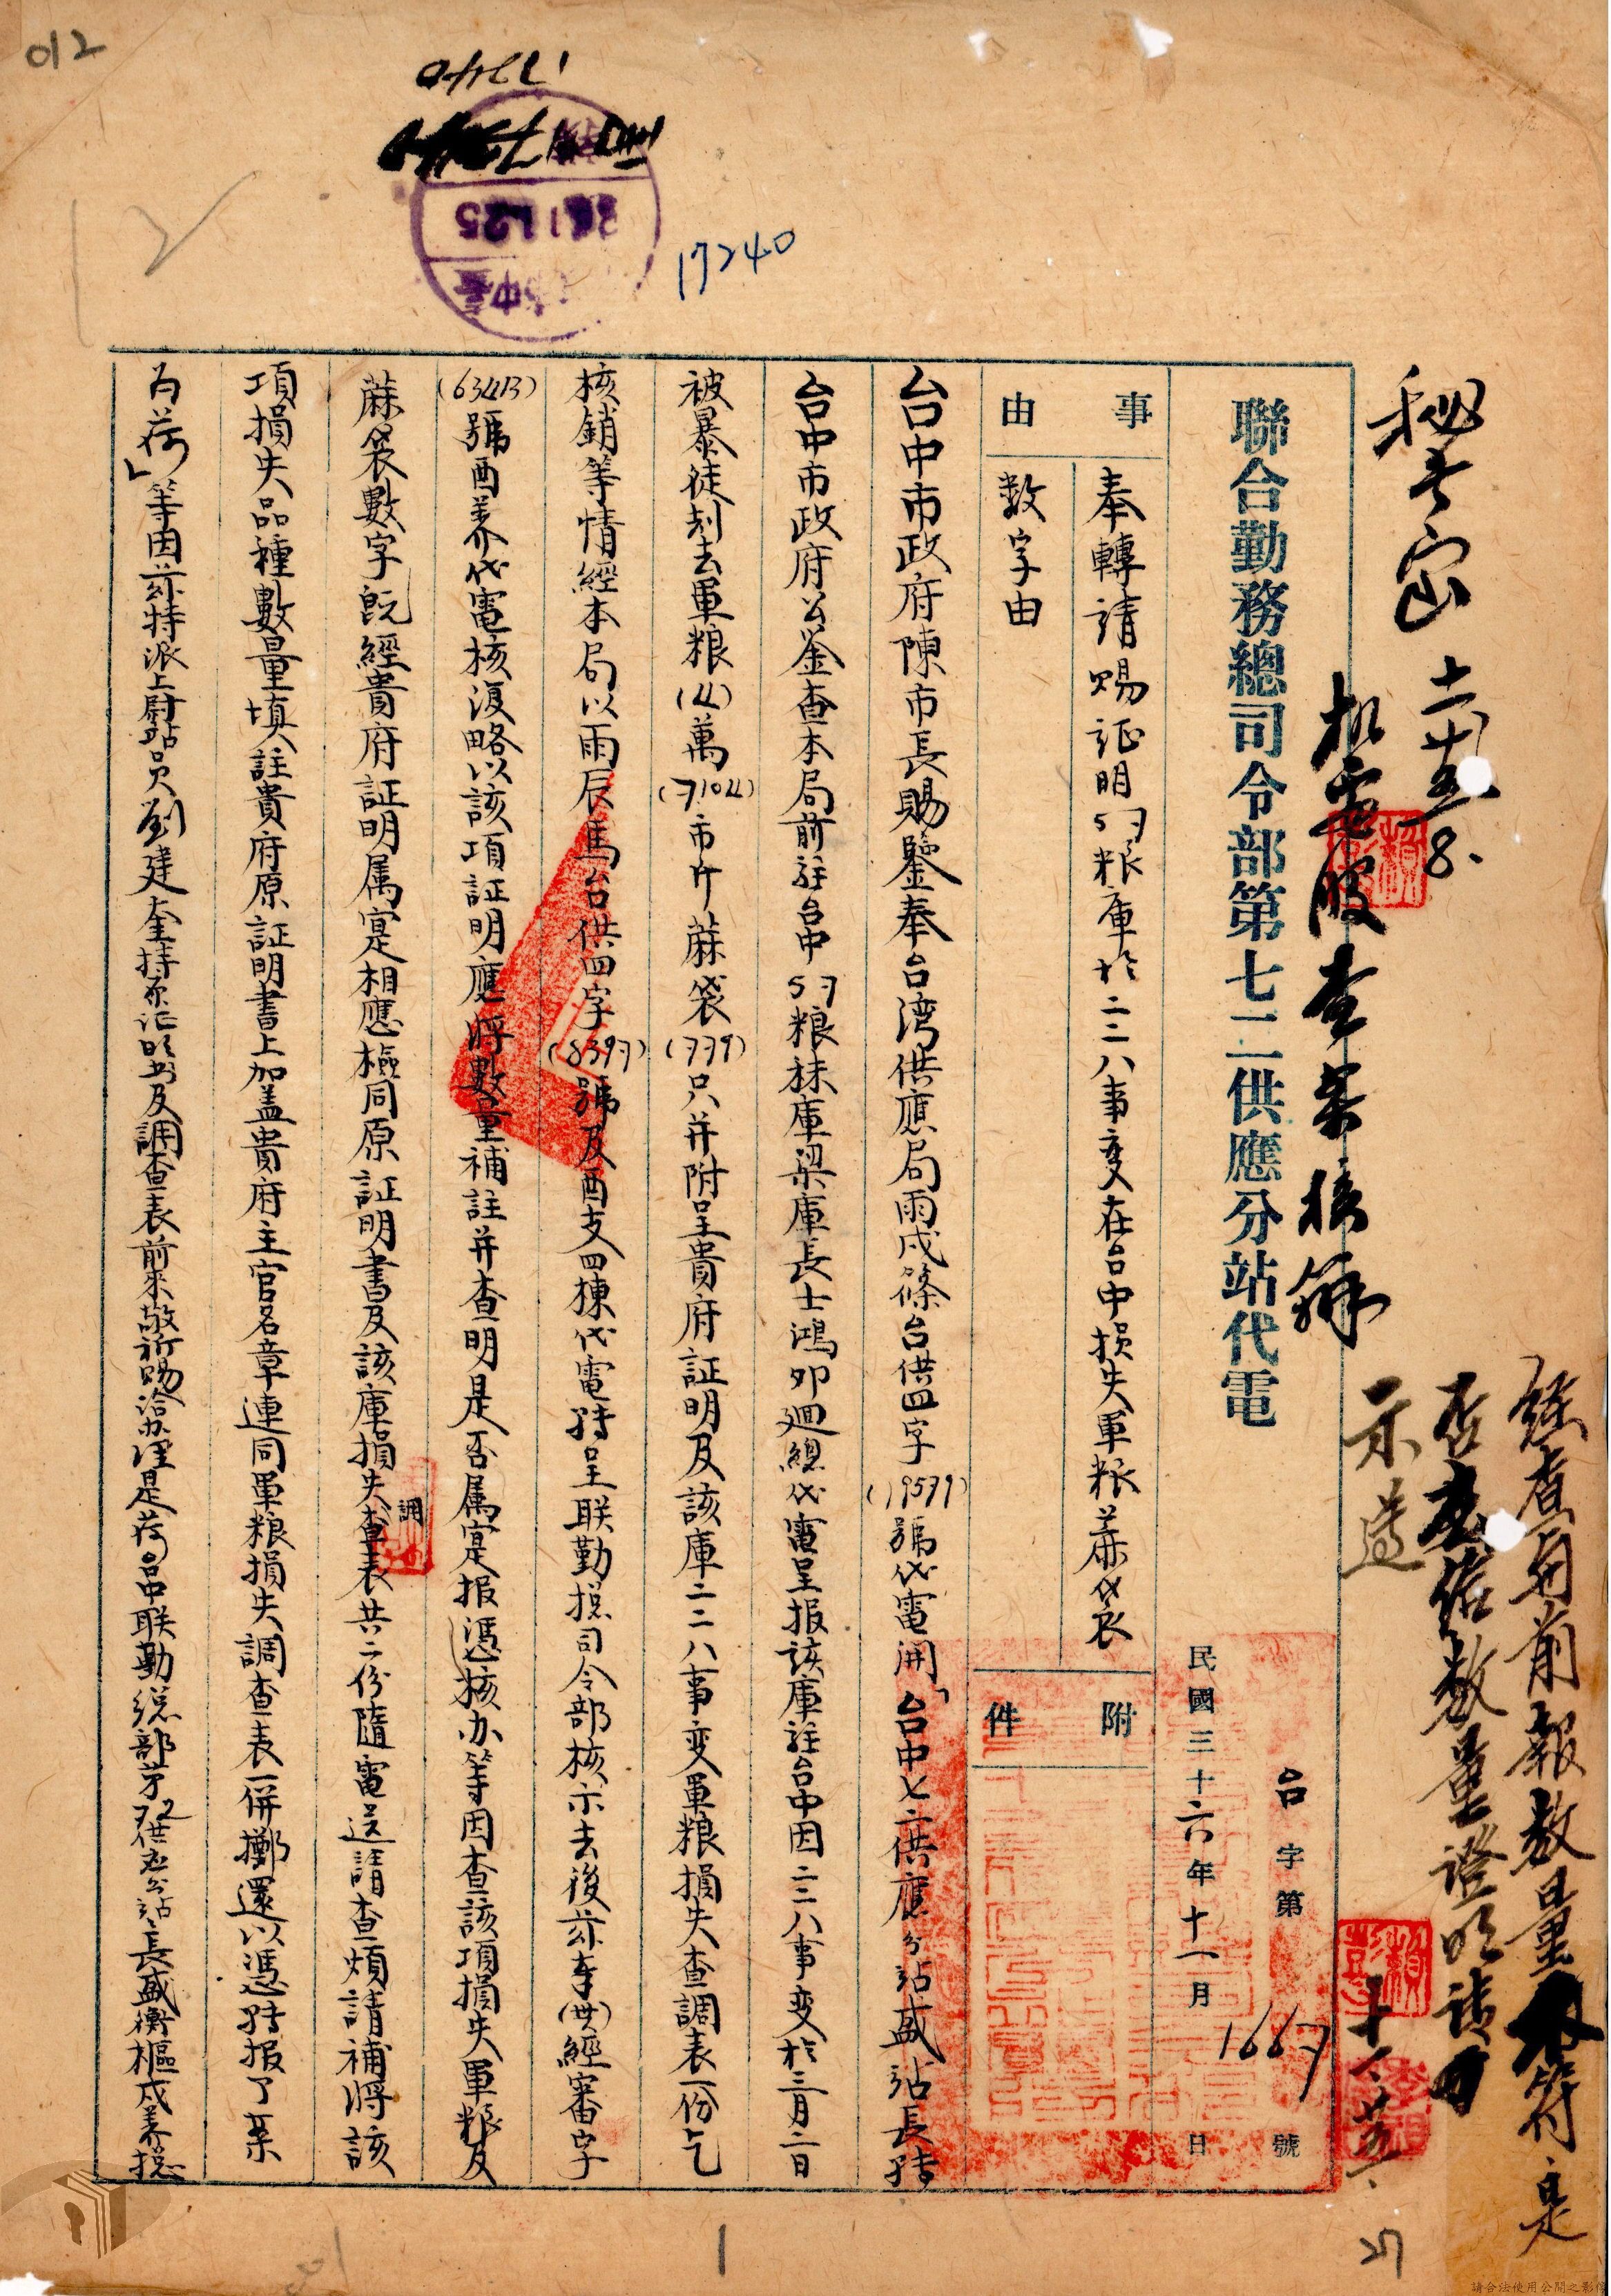 012
17240
36.11.25
台中
17240
12
經查与前報數量不符是
否應依數量證明請
示遵
十一、廿五、
秘書室 十一廿五 8.
機要股查案核辦
聯合勤務總司令部第七二供應分站代電
台字第1667號
民國三十六年十一月 日
事由
奉轉請賜証明57粮庫於二二八事变在台中損失軍粮蔴袋
数字由
附件
台中市政府陳市長賜鑒奉台湾供應局雨戌篠台供四字(19579)號代電開「台中七二供應分站盛站長轉
台中市政府公鉴查本局前駐台中57粮秣庫梁庫長士鴻卯迴總代電呈报該庫駐台中因二二八事变於三月二日
被暴徒刦去軍粮(11)萬(7104)市斤蔴袋(779)只并附呈貴府証明及該庫二二八事变軍粮損失查調表一份乞
核銷等情經本局以雨辰馬台供四字(8397)號及酉支四棟代電轉呈联勤總司令部核示去後茲奉(卅)經審字
(63413)號酉养代電核復略以該項証明應將數量補註并查明是否属寔报憑核办等因查該項損失軍粮及
蔴袋數字既經貴府証明属寔相應檢同原証明書及該庫損失調查表共二份隨電送請查煩請補將該
項損失品種數量填註貴府原証明書上加盖貴府主官名章連同軍粮損失調查表一併擲還以憑轉报了案
為荷」等因茲特派上尉站員劉建奎持原証明書及調查表前來敬祈賜洽办理是荷台中联勤總部第72供应分站站長盛衡樞戌养總
27
請合法使用公開之影像